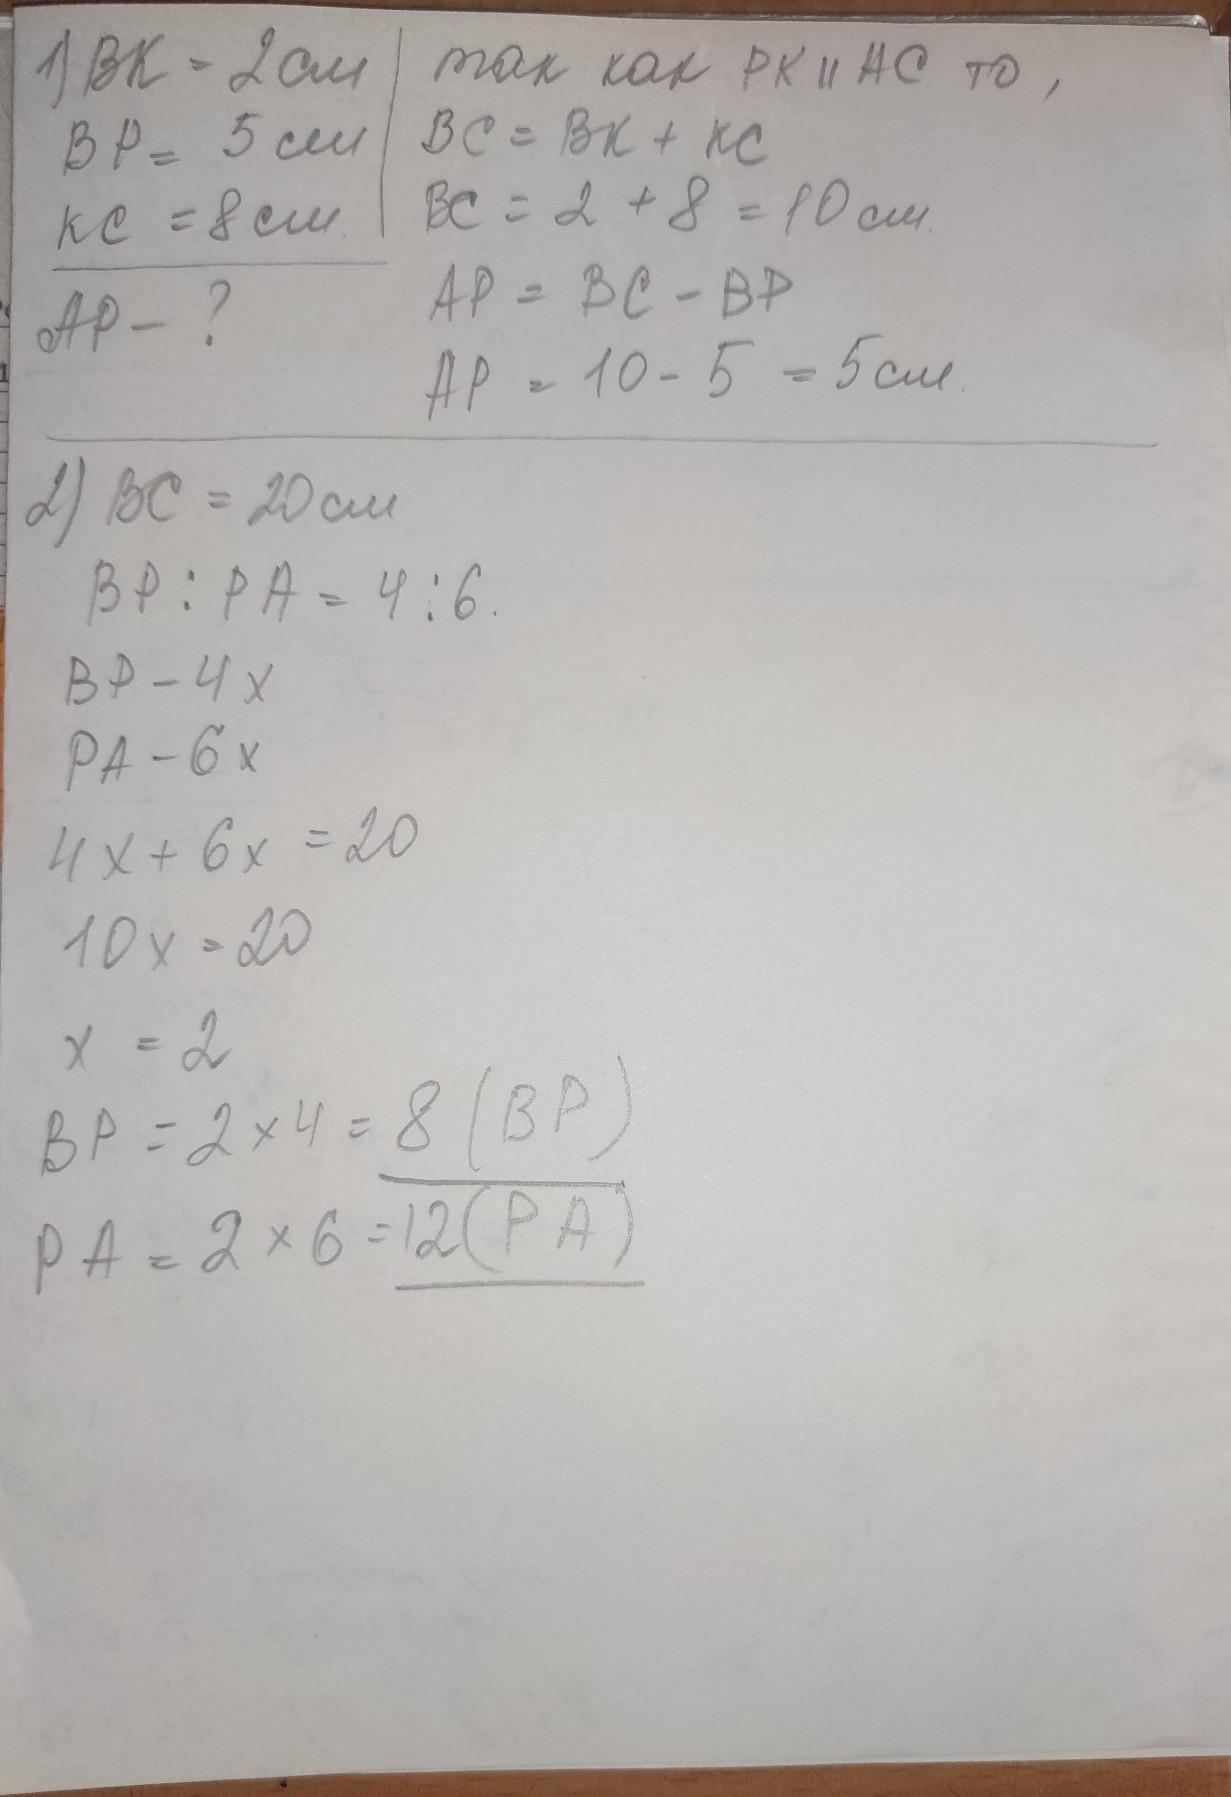 1) BK = 2см
BP = 5 см
KC = 8 см.
AP - ?
так как PK || AC то,
BC = BK + KC
BC = 2 + 8 = 10 см.
AP = BC - BP
AP = 10 - 5 = 5 см.
2) BC = 20 см
BP : PA = 4 : 6.
BP - 4x
PA - 6x
4x + 6x = 20
10x = 20
x = 2
BP = 2 × 4 = 8 (BP)
PA = 2 × 6 = 12 (PA)